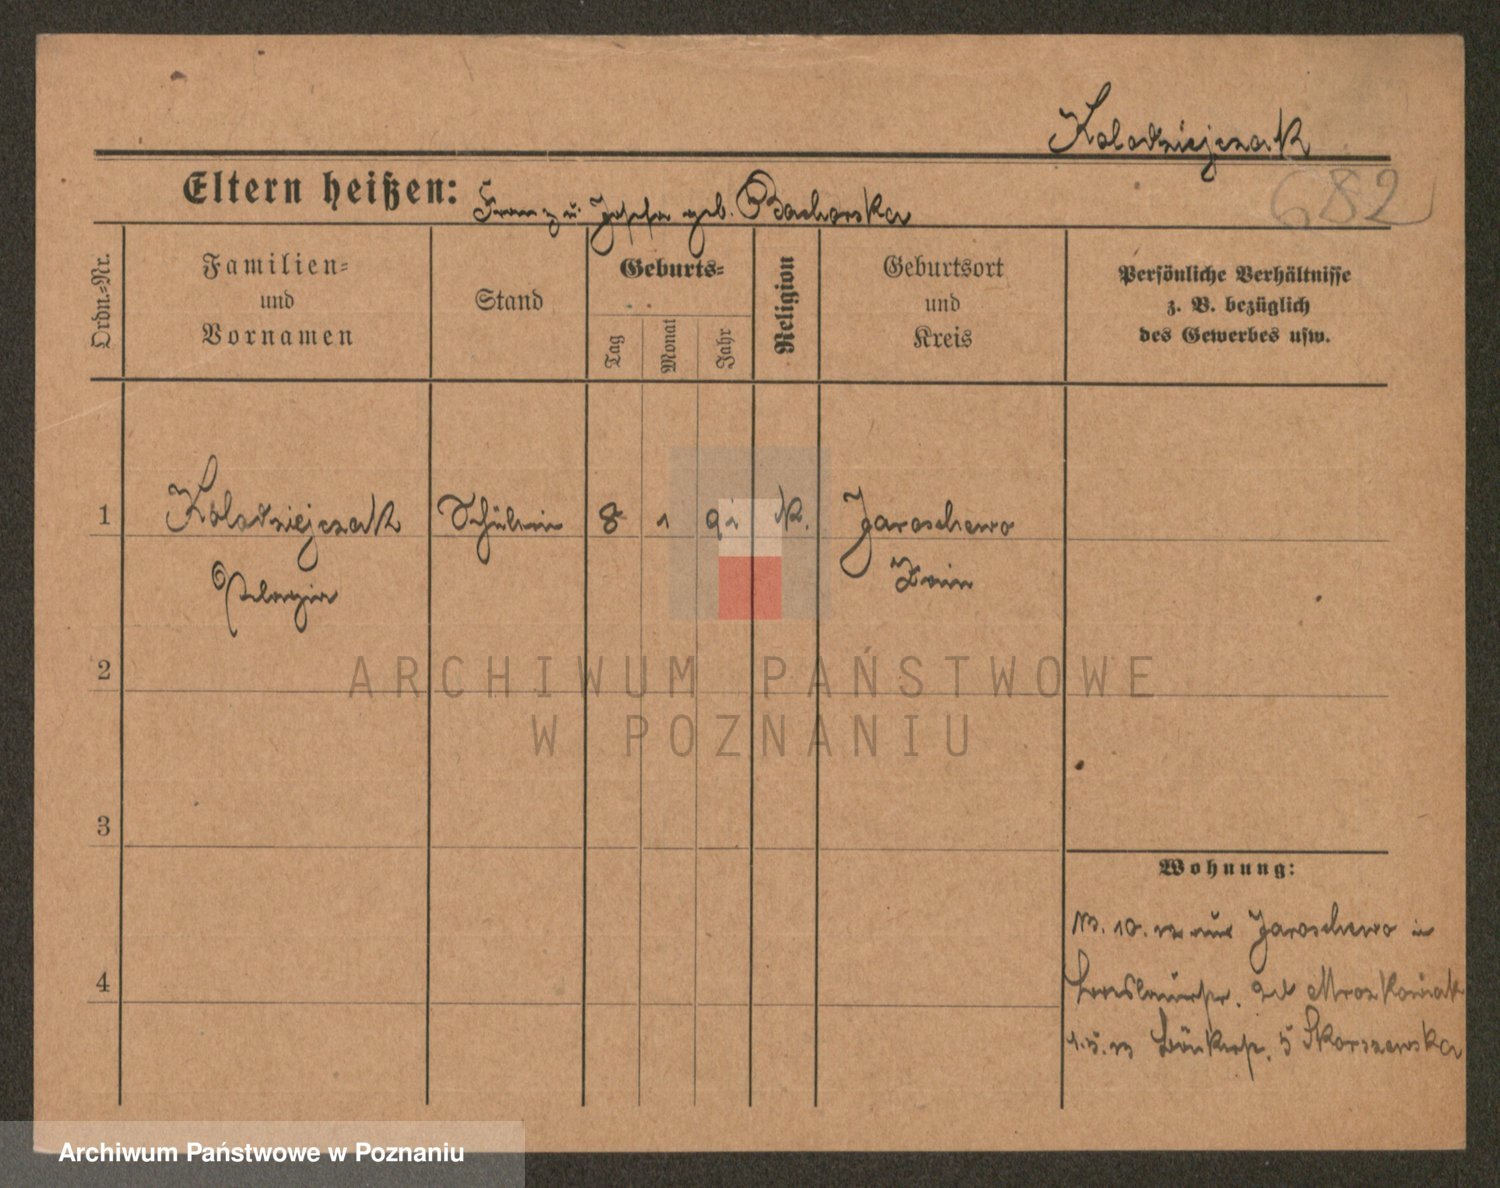 Kolodziejczak
682
Eltern heißen: Franz u. Josefa geb. Bachorska
Ordn.-Nr.
Familien-
und
Vornamen
Stand
Geburts-
Tag
Monat
Jahr
Religion
Geburtsort
und
Kreis
Persönliche Verhältnisse
z. B. bezüglich
des Gewerbes usw.
1 Kolodziejczak Schülerin 8 1 91 K. Jaroschewo
Pelagia Znin
2
ARCHIWUM PAŃSTWOWE
W POZNANIU
3
Wohnung:
10. aus Jaroschewo in
4
Breslauerstr. bei Mrozkowiak
Bäckerstr. 5 Skorszewska
Archiwum Państwowe w Poznaniu